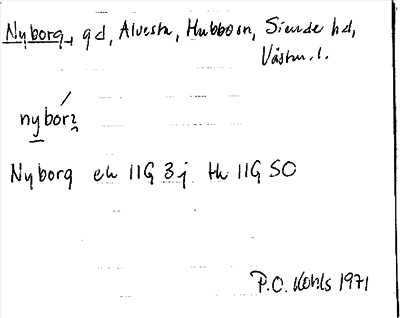 Nyborg, gd, Alvesta, Hubbo sn, Siende hd,
Västm. l.
nybor
Nyborg ek 11G 3j tk 11G SO
P.O. Kohls 1971